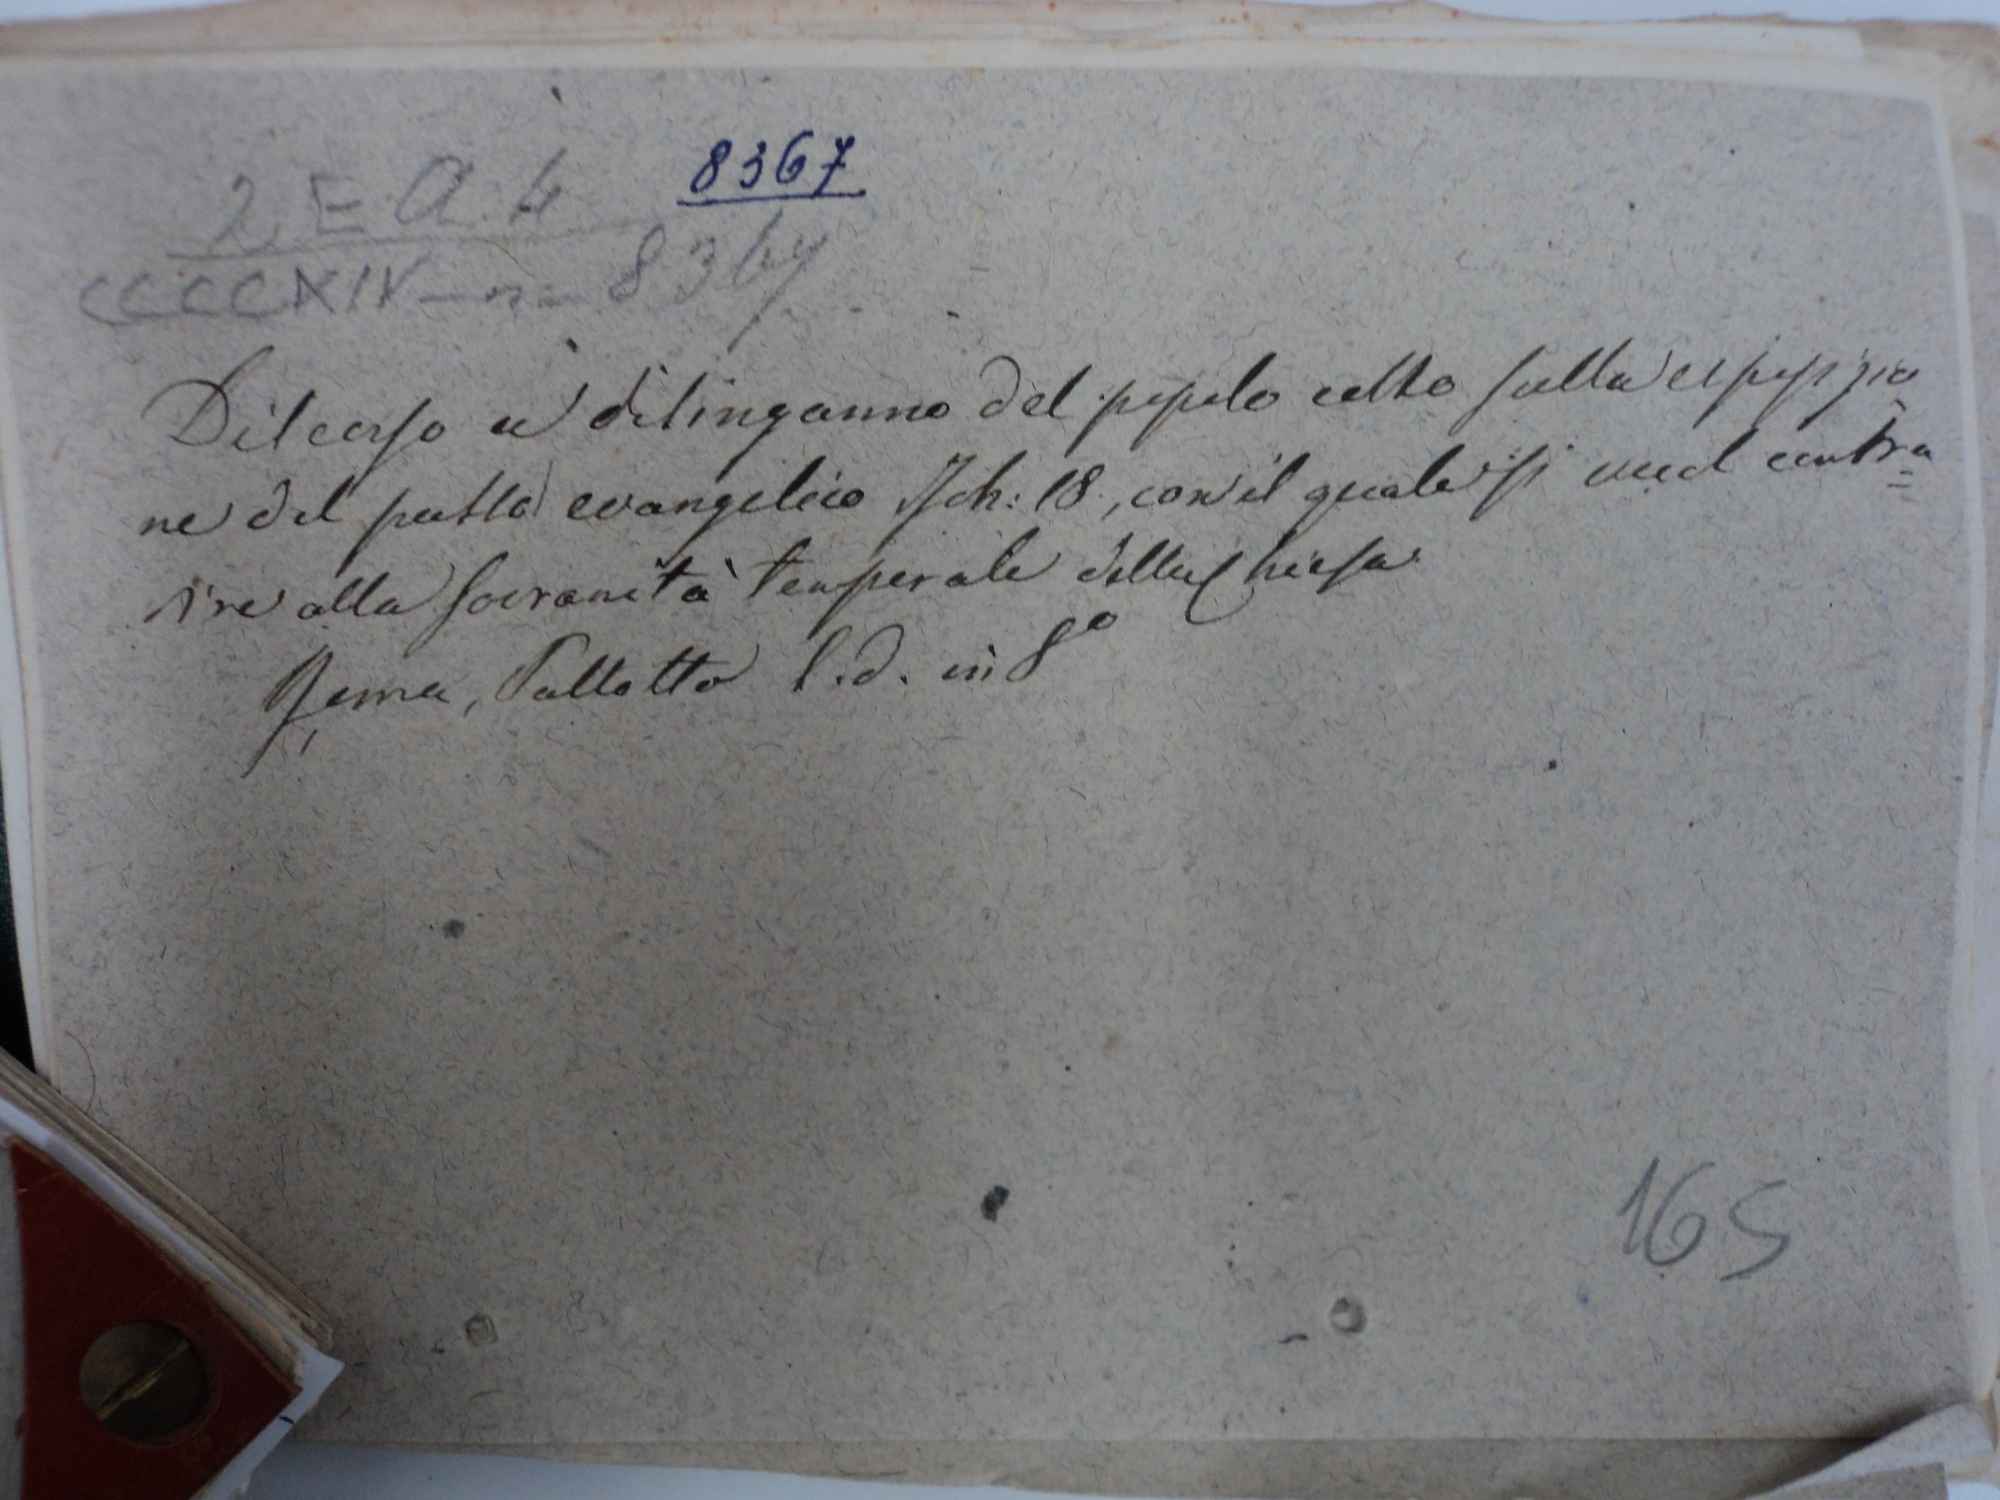 2 E a 4
8367
CCCCXIV - n - 8367
Discorso a disinganno del popolo colto sulla esposizio
ne del passo evangelico Joh: 18., con il quale si vuol contra=
rire alla sovranità temporale della Chiesa
Roma, Pallotto s.d. in 8º
165